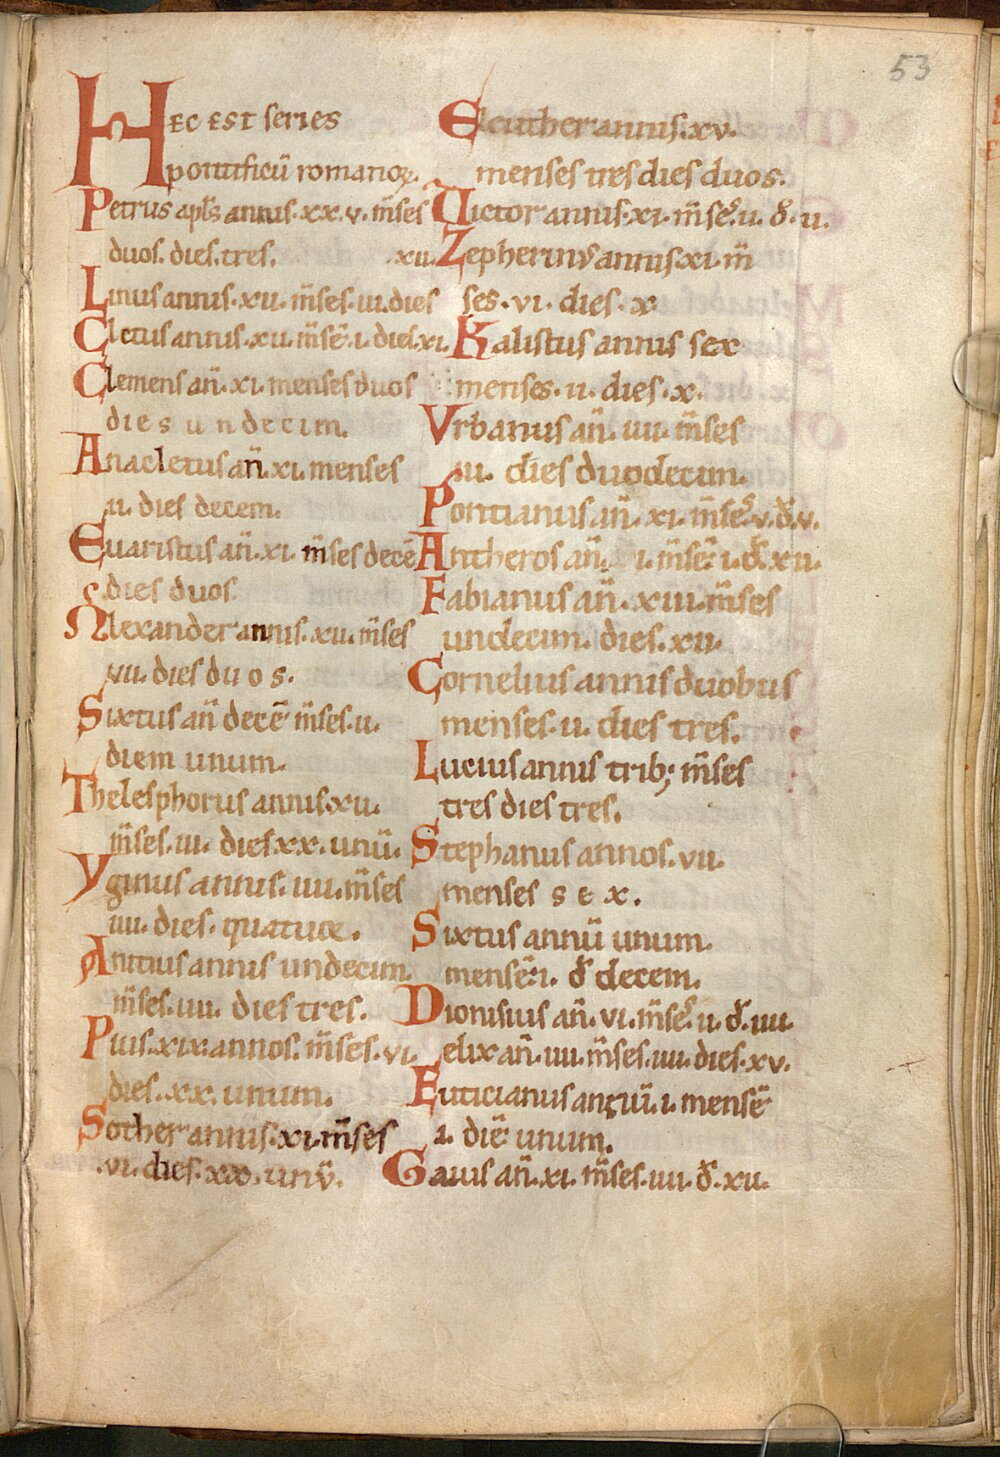 53
HEC EST series
pontificū romanoꝝ.
Petrus apl̄s annis·xx·v·m̄ses
duos. dies.tres.
Linus annis·xii· m̄ses·iii.dies ·xii.
Cletus annis·xii·m̄sē·i·dies·xi.
Clemens an̄·xi·menses duos
dies undecim.
Anacletus an̄·xi·menses
·ii·dies decem.
Euaristus an̄·xi·m̄ses decē
s·dies duos
Alexander annis·xii·m̄ses
·vii·dies duos.
Sixtus an̄ decē m̄ses·ii·
diem unum.
Thelesphorus annis·xii·
m̄ses·iii·dies·xx·unū.
Yginus annis·iiii·m̄ses
iiii·dies·quatuor.
Anitius annis undecim.
m̄ses·iiii·dies tres.
Pius·xix·annos.m̄ses·vi.
dies·xx·unum.
Sother annis·xi·m̄ses
·vi·dies·xx·unū.
Eleuther annis·xv·
menses tres dies duos.
Uictor annis·xi·m̄sēs·ii·d̄·ii·
Zepherinus annis·xi·m̄
ses·vi·dies·x
Kalistus annis sex
menses·ii·dies·x·
Vrbanus an̄·iiii·m̄ses
·iii·dies duodecim.
Pontianus an̄·xi·m̄sēs·v·d̄·v·
Antheros an̄ ·i·m̄sē·i·d̄·xii·
Fabianus an̄·xiii·m̄ses
undecim·dies·xii·
Cornelius annis duobus
menses·ii·dies tres.
Lucius annis trib; m̄ses
tres dies tres.
Stephanus annos·vii·
menses sex.
Sixtus annū unum.
mensē·i· d̄ decem.
Dionisius an̄·vi·m̄sēs·ii·d̄·iiii·
elix an̄·iiii·m̄ses·iiii·dies·xv·
Euticianus annū·i·mensē
·i·diē unum.
Gaius an̄·xi·m̄ses·iiii·d̄·xii·